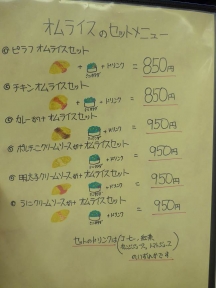 オムライスのセットメニュー
@ ピラフ オムライスセット
+ + ドリンク = 850円
チキン オムライスセット
+ + ドリンク = 850円
カレーがけ オムライスセット
+ + ドリンク = 950円
ポルチーニクリームソースがけ オムライスセット
+ + ドリンク = 950円
明太子クリームソースがけ オムライスセット
+ + ドリンク = 950円
うにクリームソースがけ オムライスセット
+ + ドリンク = 950円
セットのドリンクは
紅茶
のいずれかです